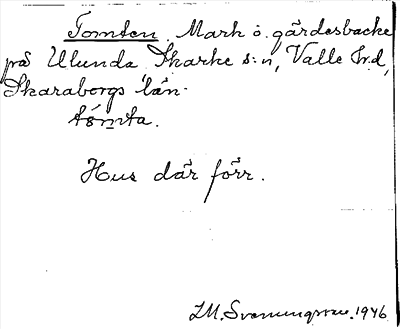 Tomten. Mark o. gärdesbacke
på Ulunda Skarke s:n, Valle hrd,
Skaraborgs län.
tómta.
Hus där förr.
1946